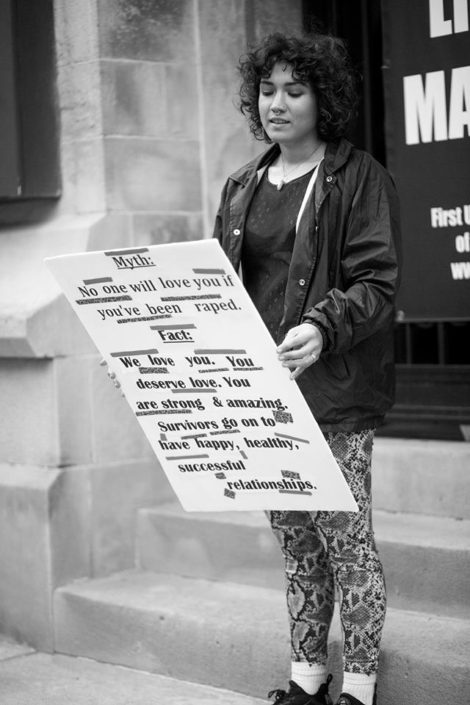 LI
MA
First
of
ww
Myth:
No one will love you if
you've been raped.
Fact:
We love you. You
deserve love. You
are strong & amazing.
Survivors go on to
have happy, healthy,
successful
relationships.